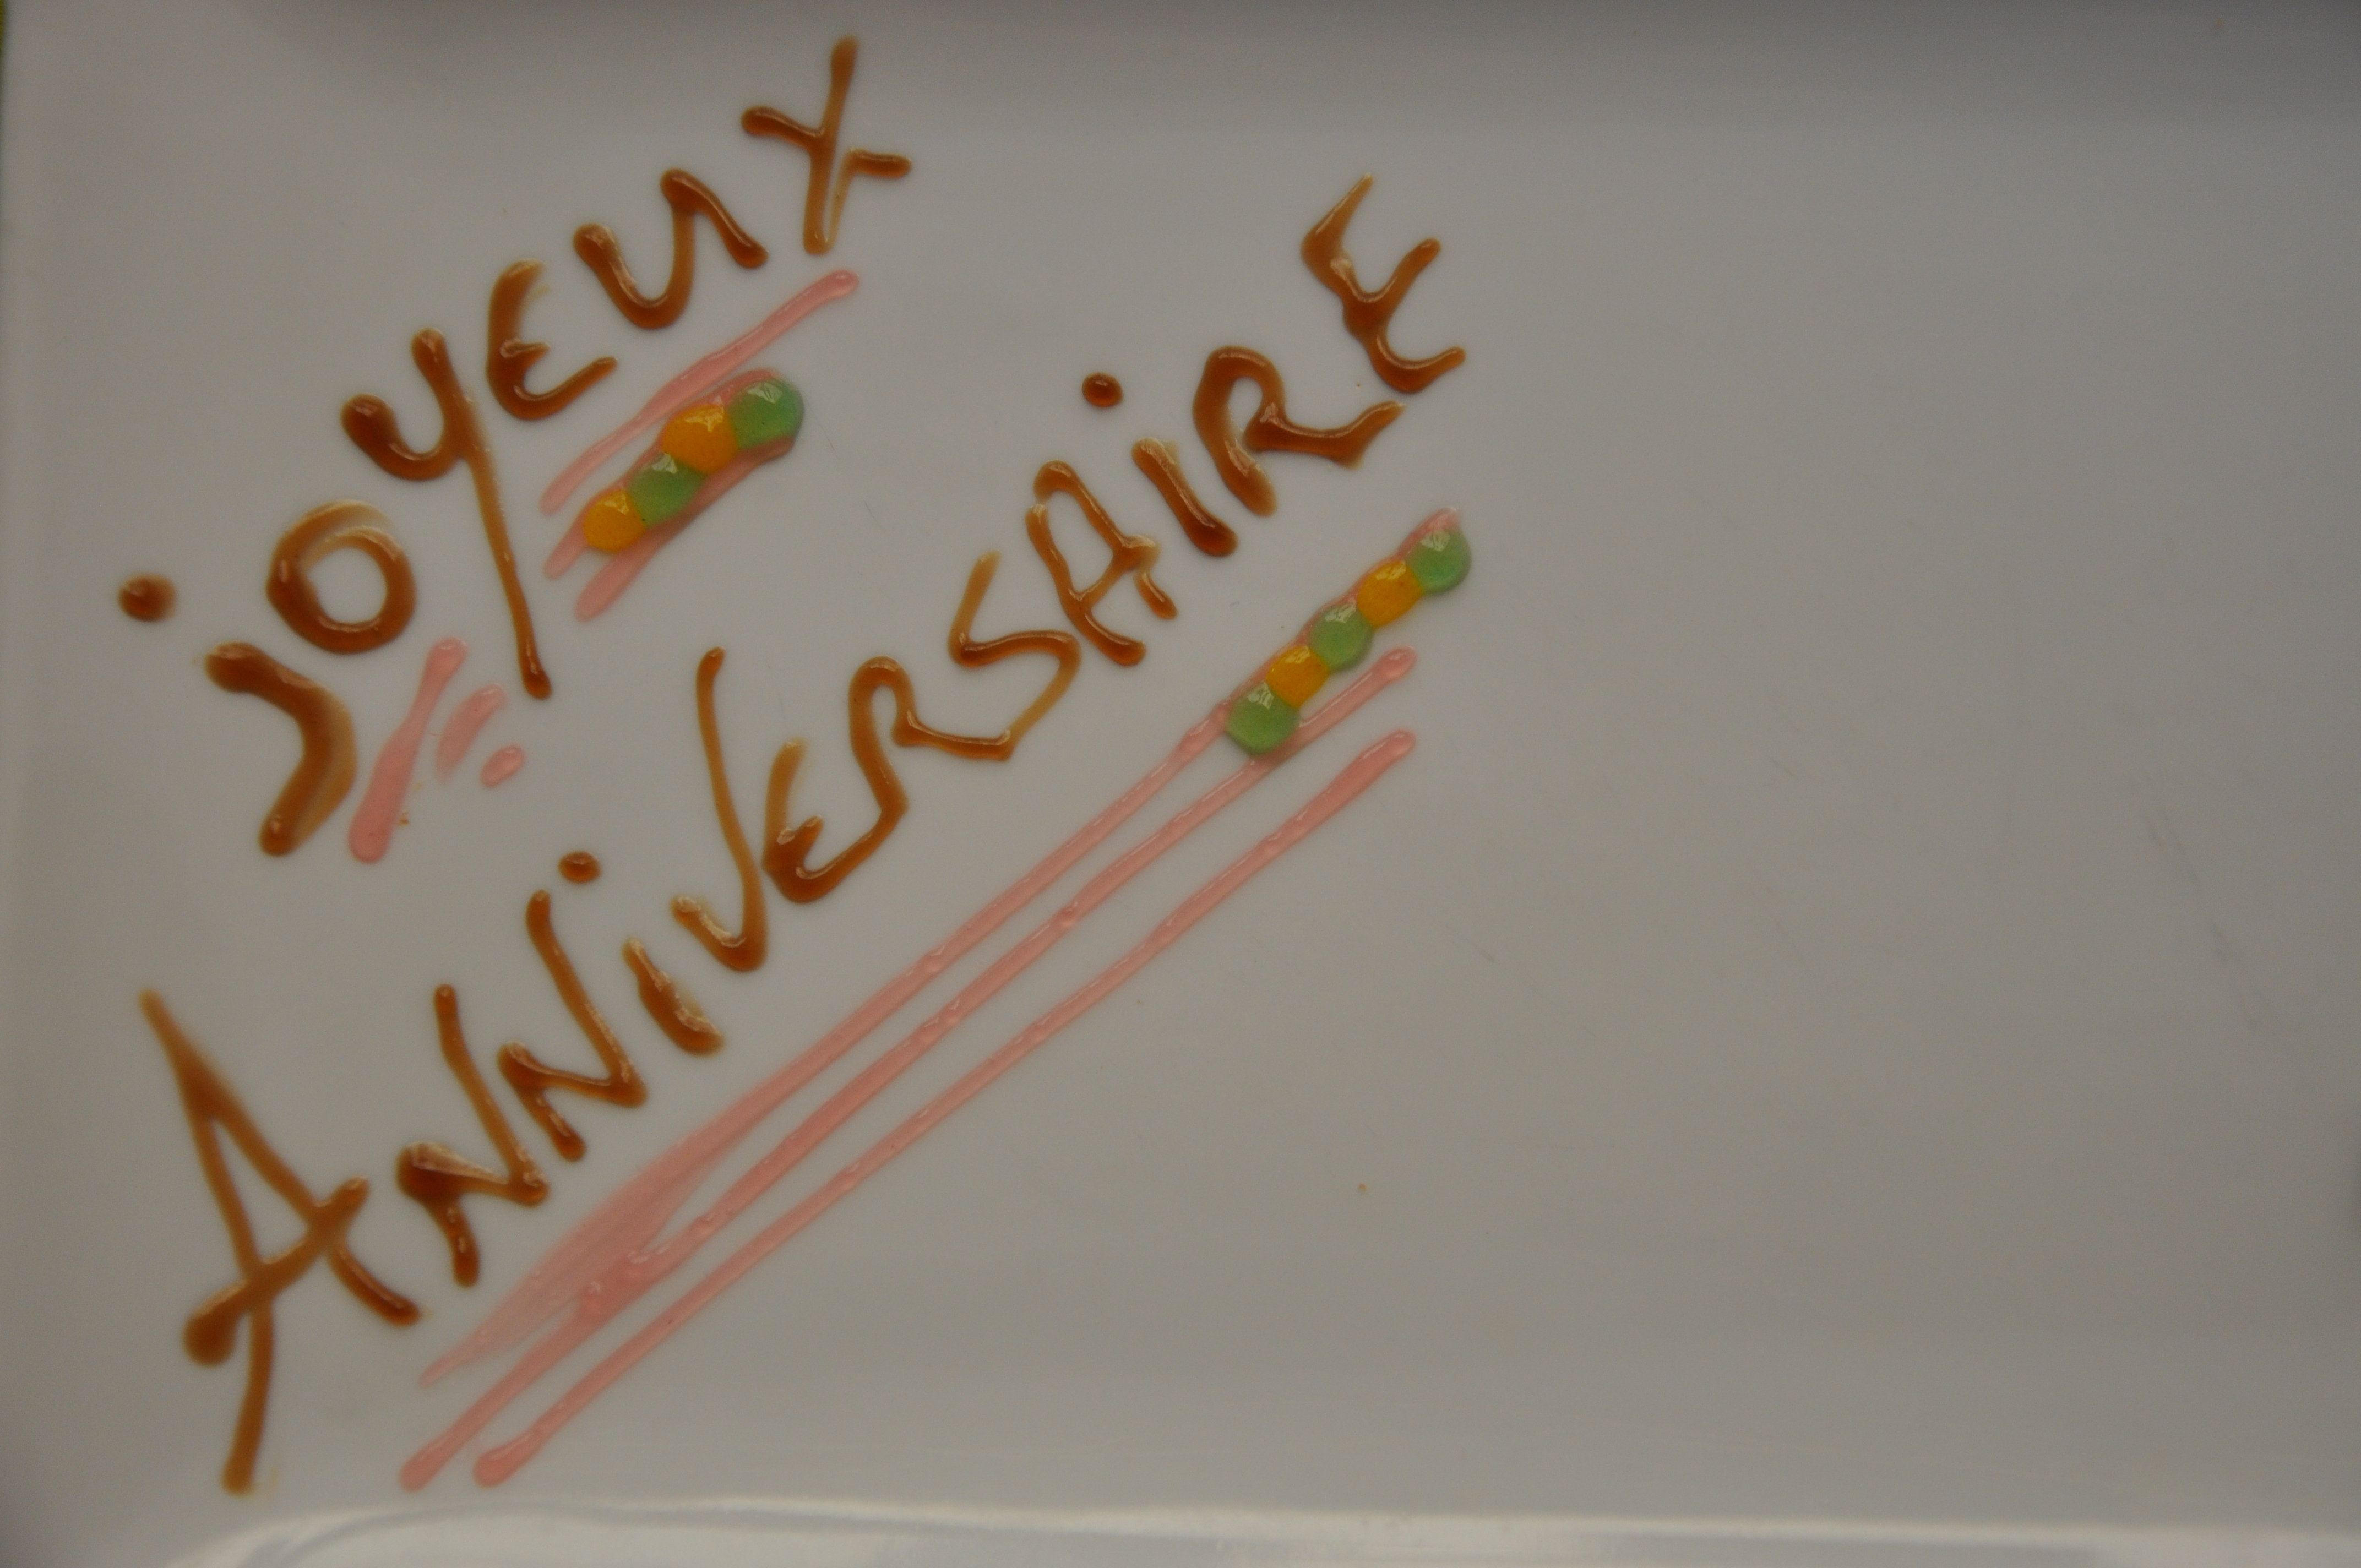 jOYEUX
ANNiVERSAiRE